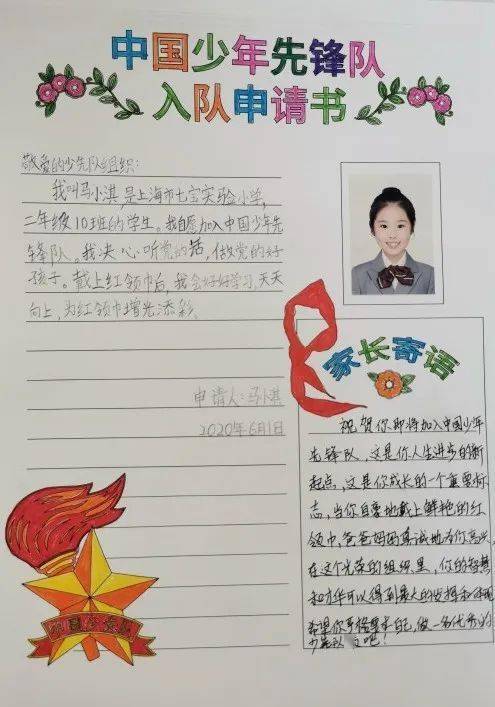 中国少年先锋队
入队申请书
敬爱的少先队组织：
我叫马小淇，是上海市七宝实验小学，
二年级10班的学生。我自愿加入中国少年先
锋队。我决心听党的话，做党的好
孩子。戴上红领巾后，我会好好学习，天天
向上，为红领巾增光添彩。
申请人：马小淇
2020年6月1日
家长寄语
祝贺你即将加入中国少年
先锋队，这是你人生进步的新
起点，这是你成长的一个重要标
志，当你自豪地戴上鲜艳的红
领巾，爸爸妈妈真诚地为你高兴，
在这个光荣的组织里，你的智慧
和才华可以得到最大的发挥和体现
希望你严格要求自己，做一名优秀的
少先队员吧！
中国少先队